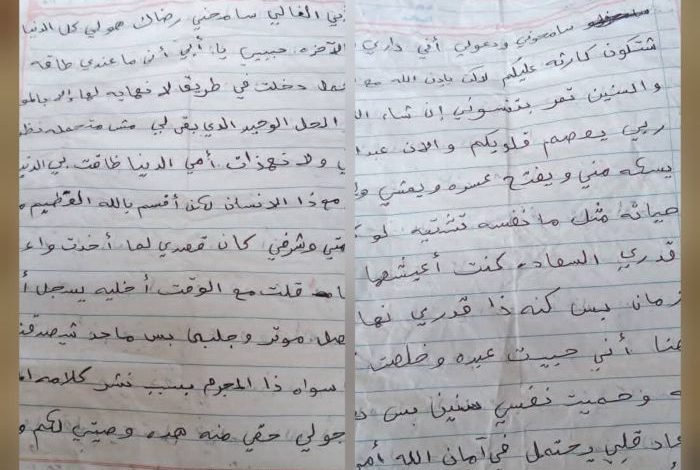 أبي الغالي سامحني رضاك هو لي كل الدنيا
الآخره. حبيبي يا أبي أن ما عندي طاقه
دخلت في طريق لا نهايه لها إلا بالمو
الحل الوحيد الذي بقى لي مش متحمله نظ
ولا نهذات. أمي الدنيا ظاقت بي الدنيا
مع ذا الانسان لكن أقسم بالله العظيم
وشرفي كان قصدي لما أخذت واعـ
قلت مع الوقت أخليه يسجل أ
موتر و جلبي بس ماحد شيصدقنـ
سواه ذا المجرم بسبب نشر كلامه
جولي حقي منه هذه وصيتي لكم و
سامحوني ودعولي أني داري
شتكون كارثه عليكم لاكن باذن الله مع
والسنين تمر بتنسوني إن شاء الـ
ربي يعصم قلوبكم والان
يسكه مني ويفتح عسره ويمشي
حياته مثل ما نفسه تشتيه لو
قدري السعاده كنت أعيشها
زمان بس كنه ذا قدري نها
أني حبيت عبده و خلصت
و حميت نفسي سنين بس
عاد قلبي يحتمل في أمان الله